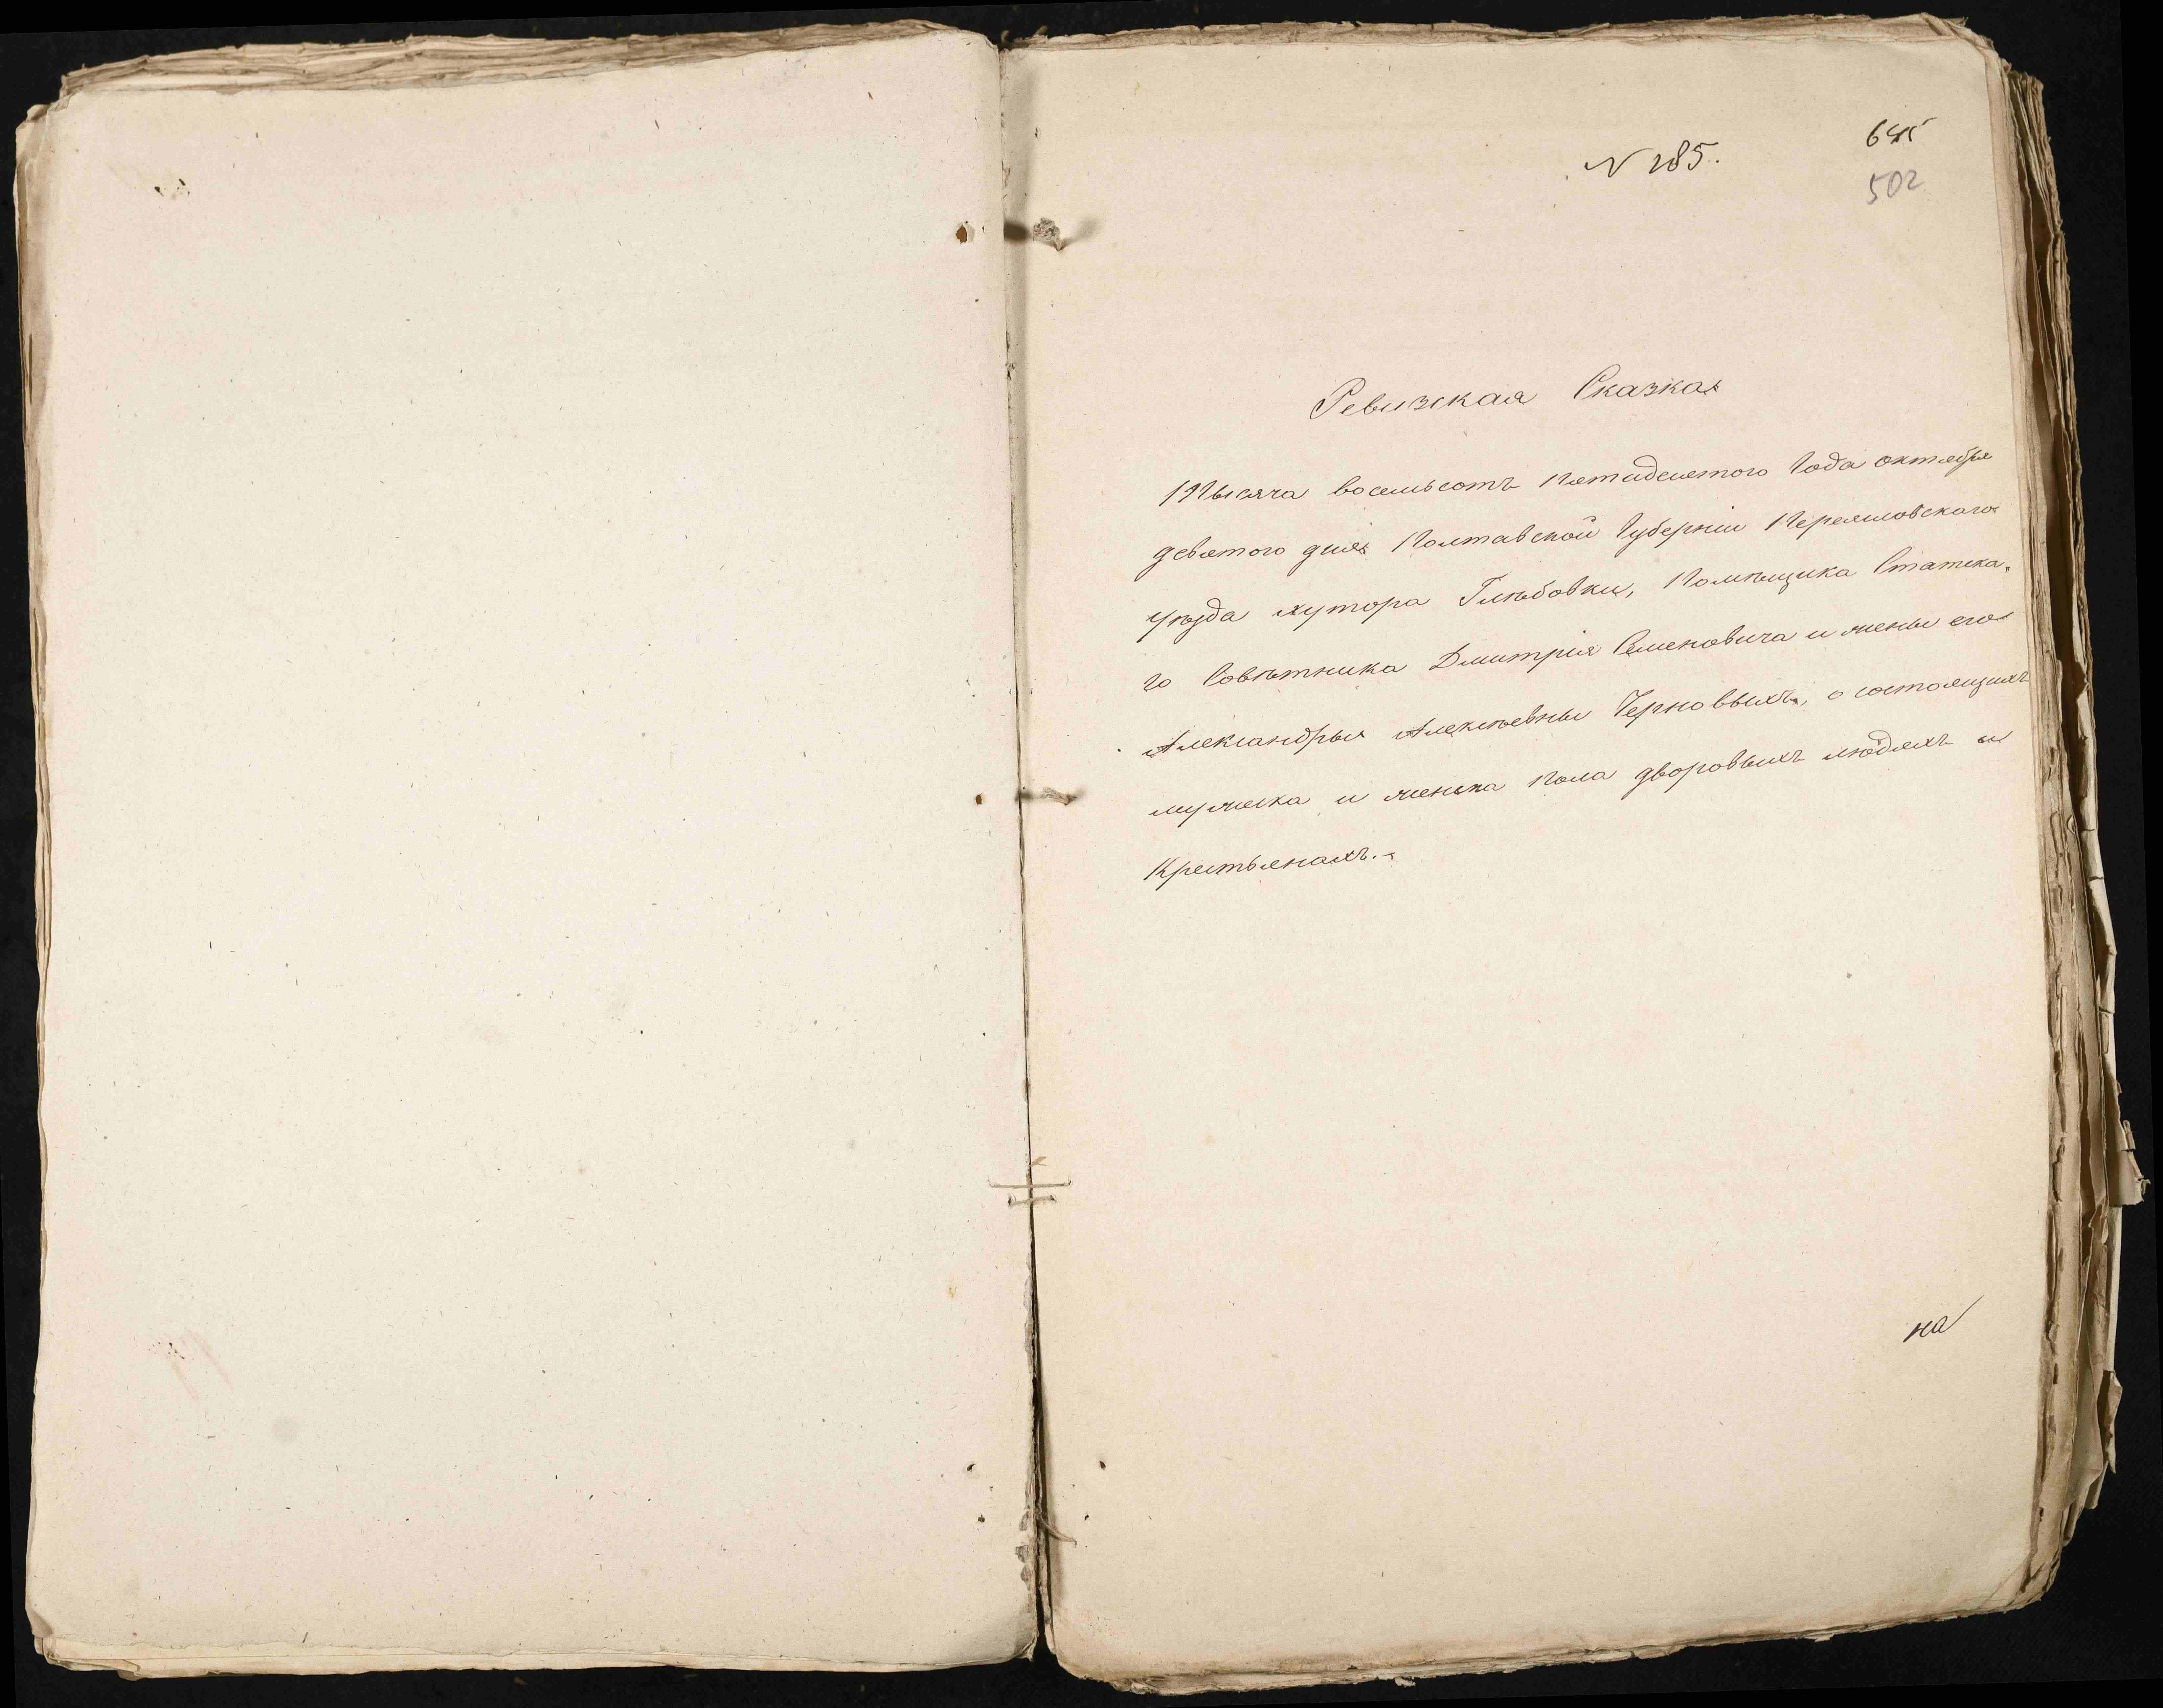 N 285.
502
Ревизская Сказка
Тысяча восемьсотъ пятидесятого года октября
девятого дня Полтавской Губерніи Переяловского
уѣзда хутора Глѣбовки, Помѣщика Статска-
го Совѣтника Дмитрія Семеновича и жены его
Александры Алексѣевны Черновыхъ, о состоящихъ
мужеска и женска пола дворовыхъ людяхъ и
крестьянахъ.
на